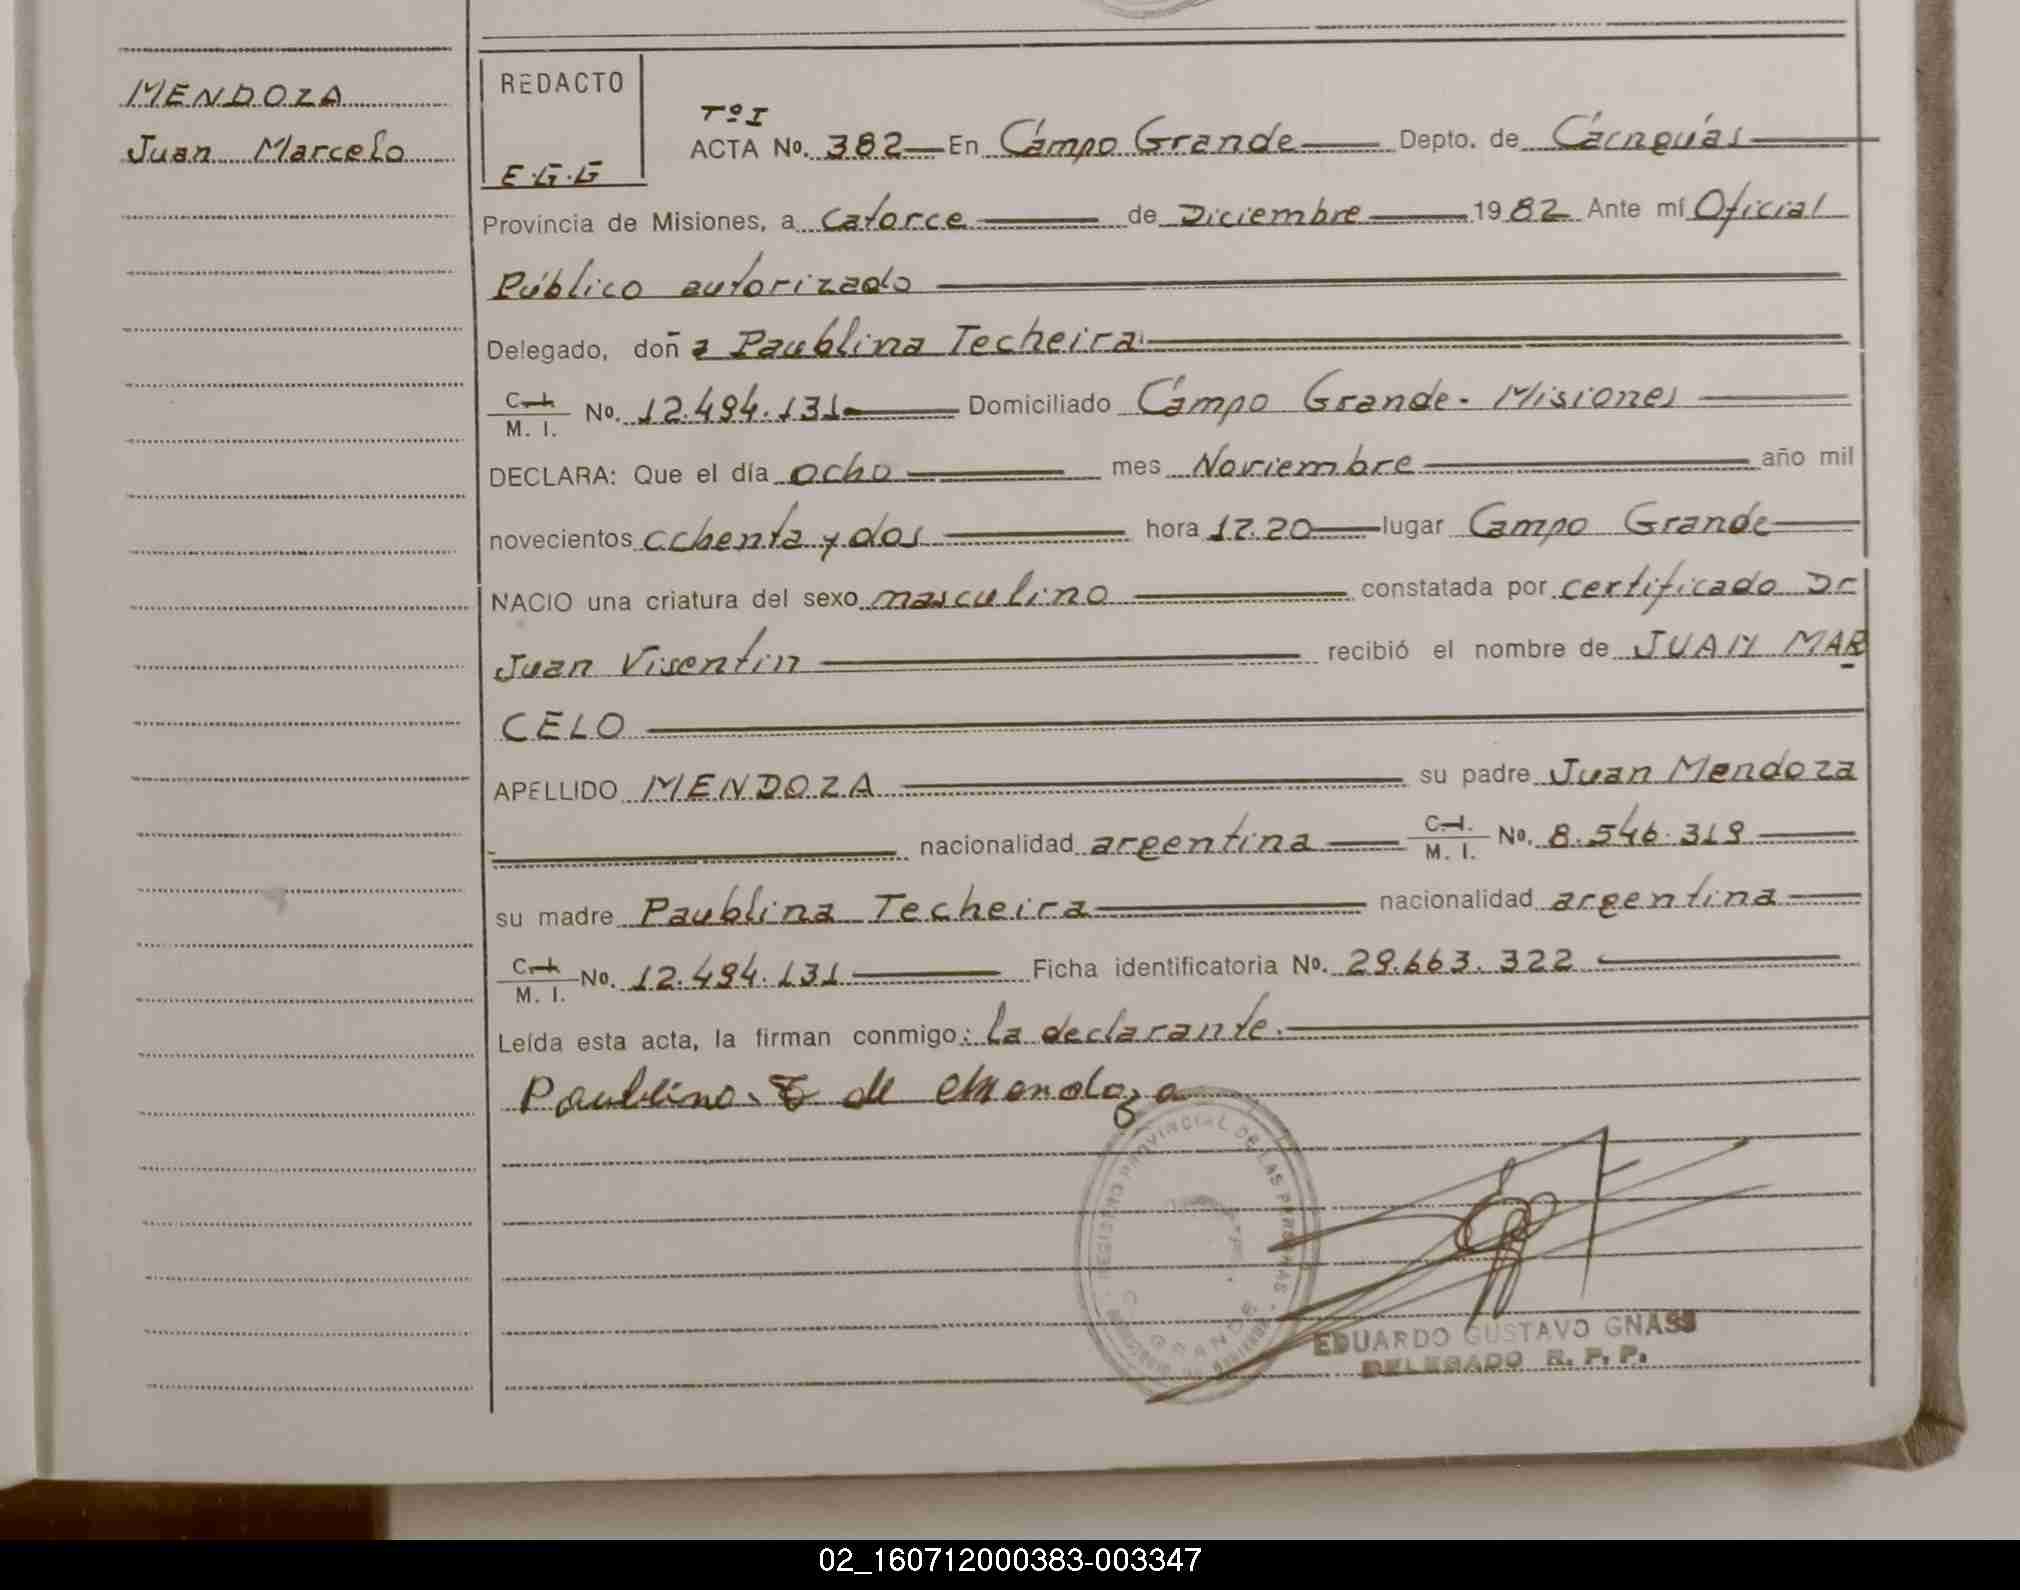 MENDOZA
Juan Marcelo
REDACTO
E.G.G
Tº I
ACTA Nº. 382 En Campo Grande Depto. de Cainguás
Provincia de Misiones, a catorce de Diciembre 1982 Ante mí Oficial
Público autorizado
Delegado, doña Paublina Techeira
C.I. / M. I. Nº. 12.494.131 Domiciliado Campo Grande - Misiones
DECLARA: Que el día ocho mes Noviembre año mil
novecientos ochenta y dos hora 12.20 lugar Campo Grande
NACIO una criatura del sexo masculino constatada por certificado Dr
Juan Visentin recibió el nombre de JUAN MAR
CELO
APELLIDO MENDOZA su padre Juan Mendoza
nacionalidad argentina C.I. / M. I. Nº. 8.546.319
su madre Paublina Techeira nacionalidad argentina
C.I. / M. I. Nº. 12.494.131 Ficha identificatoria Nº. 29.663.322
Leída esta acta, la firman conmigo: la declarante.
Paublina T de Mendoza
REGISTRO PROVINCIAL DE LAS PERSONAS
GRANDE
EDUARDO GUSTAVO GNASS
DELEGADO R. P. P.
02_160712000383-003347